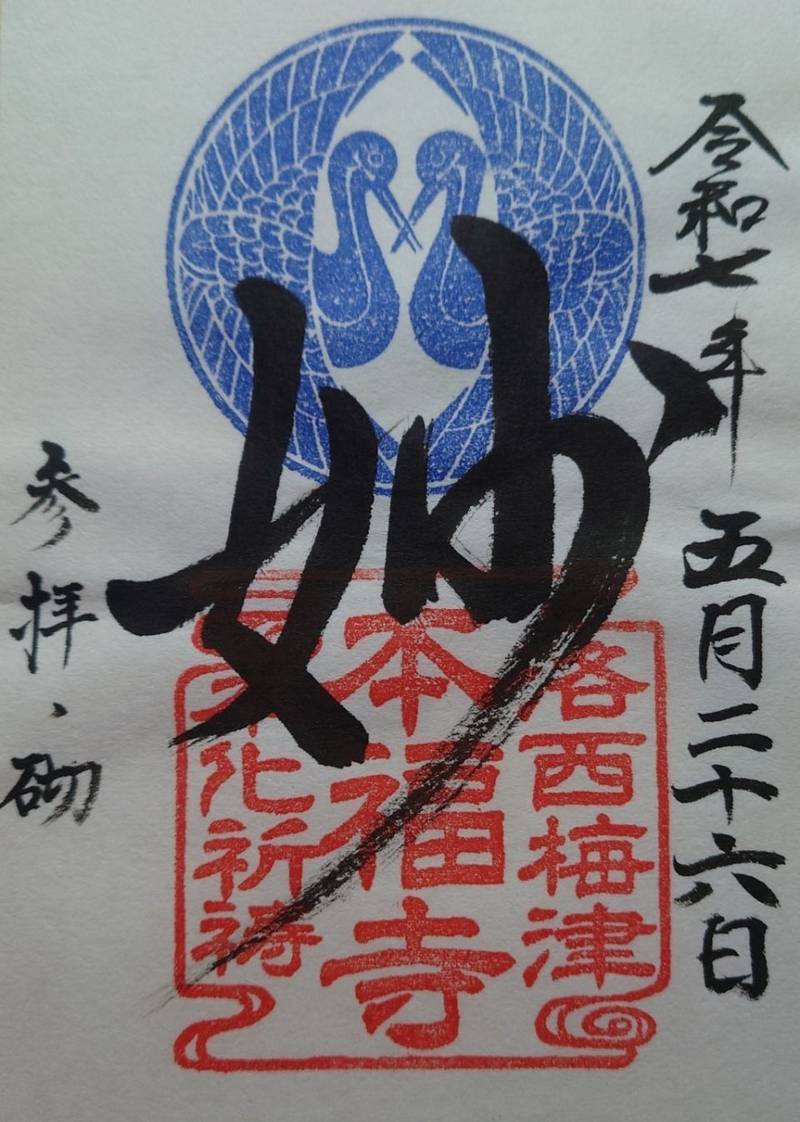 令和七年 五月二十六日
妙
洛西梅津
本福寺
文化祈祷
参拝、砌